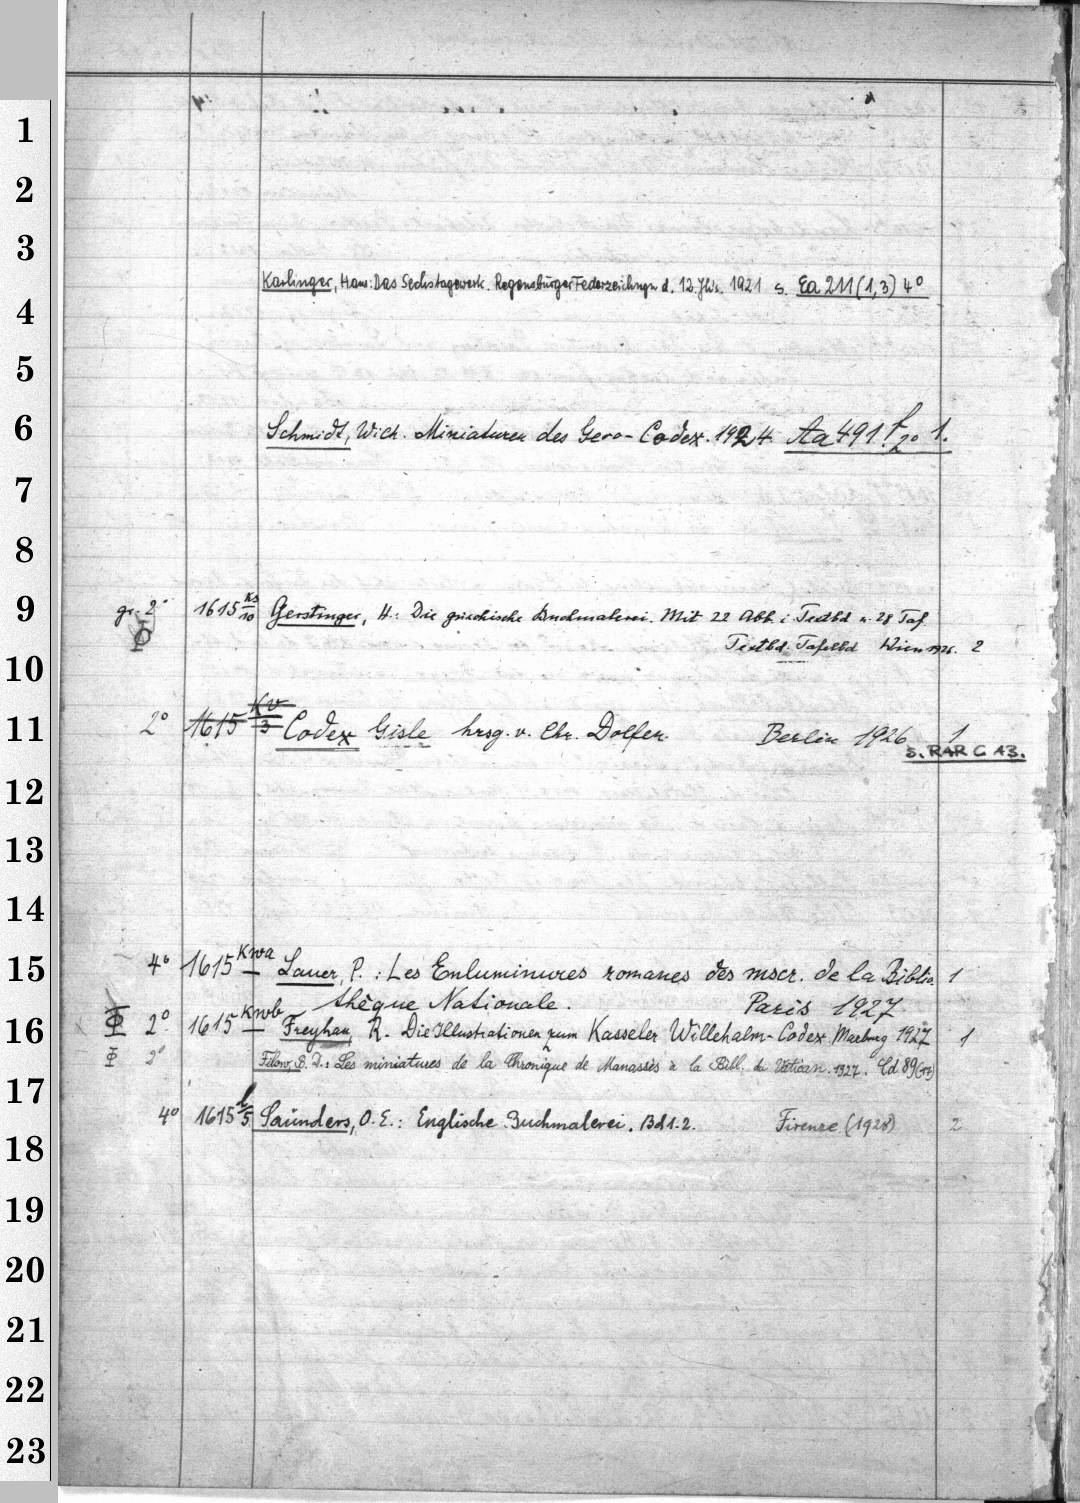 1
2
3
Karlinger, Hans: Das Sechstagewerk. Regensburger Federzeichngn d. 12. Jhdts. 1921 s. Ea 211 (1,3) 4°
4
5
6 Schmidt, Wich. Miniaturen des Gero-Codex. 1924 Aa 491 f 2° 1.
7
8
9 gr. 2° 1615 Ks/10 Gerstinger, H.: Die griechische Buchmalerei. Mit 22 Abb. i. Textbd u. 28 Taf.
Textbd. Tafelbd Wien 1926. 2
10
11 2° 1615 Kv/3 Codex Gisle hrsg. v. Chr. Dolfen Berlin 1926 1
s. RAR C 13.
12
13
14
15 4° 1615 Kwa Lauer, P.: Les Enluminures romanes des mscr. de la Biblio- 1
thèque Nationale. Paris 1927
16 2° 1615 Kwb Freyhan, R. Die Illustrationen zum Kasseler Willehalm-Codex Marburg 1927 1
2° Filow, B. D.: Les miniatures de la Chronique de Manassès à la Bibl. du Vatican. 1927. Cd 89
17
4° 1615 Saunders, O. E.: Englische Buchmalerei. Bd 1.2. Firenze (1928) 2
18
19
20
21
22
23